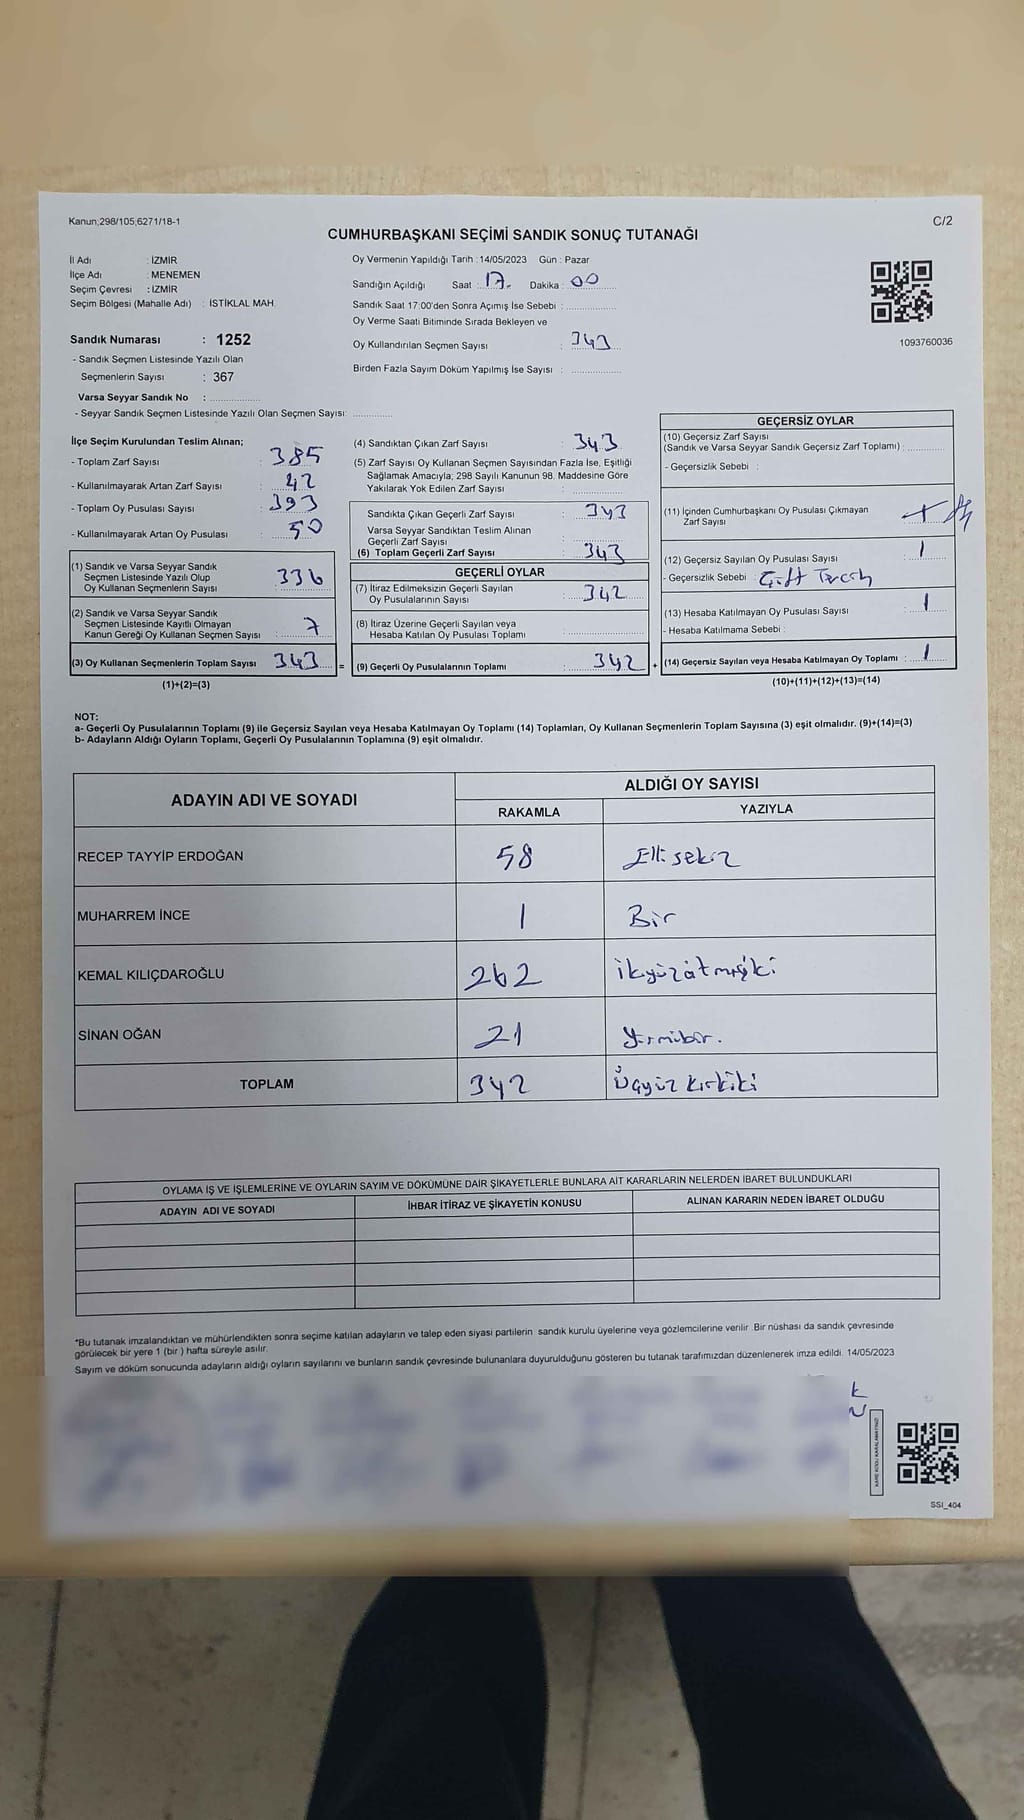 Kanun,298/105,6271/18-1
C/2
CUMHURBAŞKANI SEÇİMİ SANDIK SONUÇ TUTANAĞI
İl Adı : İZMİR
İlçe Adı : MENEMEN
Seçim Çevresi : İZMİR
Seçim Bölgesi (Mahalle Adı) : İSTİKLAL MAH.
Sandık Numarası : 1252
- Sandık Seçmen Listesinde Yazılı Olan
Seçmenlerin Sayısı : 367
Varsa Seyyar Sandık No :
- Seyyar Sandık Seçmen Listesinde Yazılı Olan Seçmen Sayısı:
Oy Vermenin Yapıldığı Tarih : 14/05/2023 Gün : Pazar
Sandığın Açıldığı Saat : 17. Dakika : 00
Sandık Saat 17:00'den Sonra Açımış İse Sebebi :
Oy Verme Saati Bitiminde Sırada Bekleyen ve
Oy Kullandırılan Seçmen Sayısı : 343
Birden Fazla Sayım Döküm Yapılmış İse Sayısı :
1093760036
İlçe Seçim Kurulundan Teslim Alınan;
- Toplam Zarf Sayısı : 385
- Kullanılmayarak Artan Zarf Sayısı : 42
- Toplam Oy Pusulası Sayısı : 393
- Kullanılmayarak Artan Oy Pusulası : 50
(1) Sandık ve Varsa Seyyar Sandık
Seçmen Listesinde Yazılı Olup
Oy Kullanan Seçmenlerin Sayısı : 336
(2) Sandık ve Varsa Seyyar Sandık
Seçmen Listesinde Kayıtlı Olmayan
Kanun Gereği Oy Kullanan Seçmen Sayısı : 7
(3) Oy Kullanan Seçmenlerin Toplam Sayısı : 343 =
(1)+(2)=(3)
(4) Sandıktan Çıkan Zarf Sayısı : 343
(5) Zarf Sayısı Oy Kullanan Seçmen Sayısından Fazla İse, Eşitliği
Sağlamak Amacıyla, 298 Sayılı Kanunun 98. Maddesine Göre
Yakılarak Yok Edilen Zarf Sayısı :
Sandıkta Çıkan Geçerli Zarf Sayısı : 343
Varsa Seyyar Sandıktan Teslim Alınan
Geçerli Zarf Sayısı :
(6) Toplam Geçerli Zarf Sayısı : 343
GEÇERLİ OYLAR
(7) İtiraz Edilmeksizin Geçerli Sayılan
Oy Pusulalarının Sayısı : 342
(8) İtiraz Üzerine Geçerli Sayılan veya
Hesaba Katılan Oy Pusulası Toplamı :
(9) Geçerli Oy Pusulalarının Toplamı : 342 +
GEÇERSİZ OYLAR
(10) Geçersiz Zarf Sayısı
(Sandık ve Varsa Seyyar Sandık Geçersiz Zarf Toplamı) :
- Geçersizlik Sebebi :
(11) İçinden Cumhurbaşkanı Oy Pusulası Çıkmayan
Zarf Sayısı
(12) Geçersiz Sayılan Oy Pusulası Sayısı : 1
- Geçersizlik Sebebi : Çift Tercih
(13) Hesaba Katılmayan Oy Pusulası Sayısı : 1
- Hesaba Katılmama Sebebi :
(14) Geçersiz Sayılan veya Hesaba Katılmayan Oy Toplamı : 1
(10)+(11)+(12)+(13)=(14)
NOT:
a- Geçerli Oy Pusulalarının Toplamı (9) ile Geçersiz Sayılan veya Hesaba Katılmayan Oy Toplamı (14) Toplamları, Oy Kullanan Seçmenlerin Toplam Sayısına (3) eşit olmalıdır. (9)+(14)=(3)
b- Adayların Aldığı Oyların Toplamı, Geçerli Oy Pusulalarının Toplamına (9) eşit olmalıdır.
ADAYIN ADI VE SOYADI
ALDIĞI OY SAYISI
RAKAMLA YAZIYLA
RECEP TAYYİP ERDOĞAN 58 Elli sekiz
MUHARREM İNCE 1 Bir
KEMAL KILIÇDAROĞLU 262 ikiyüzatmışiki
SİNAN OĞAN 21 Yirmibir.
TOPLAM 342 Üçyüz kırkiki
OYLAMA İŞ VE İŞLEMLERİNE VE OYLARIN SAYIM VE DÖKÜMÜNE DAİR ŞİKAYETLERLE BUNLARA AİT KARARLARIN NELERDEN İBARET BULUNDUKLARI
ADAYIN ADI VE SOYADI İHBAR İTİRAZ VE ŞİKAYETİN KONUSU ALINAN KARARIN NEDEN İBARET OLDUĞU
*Bu tutanak imzalandıktan ve mühürlendikten sonra seçime katılan adayların ve talep eden siyasi partilerin sandık kurulu üyelerine veya gözlemcilerine verilir. Bir nüshası da sandık çevresinde
görülecek bir yere 1 (bir ) hafta süreyle asılır.
Sayım ve döküm sonucunda adayların aldığı oyların sayılarını ve bunların sandık çevresinde bulunanlara duyurulduğunu gösteren bu tutanak tarafımızdan düzenlenerek imza edildi. 14/05/2023
KARE KODU KARALAMAYINIZ!
SSI_404